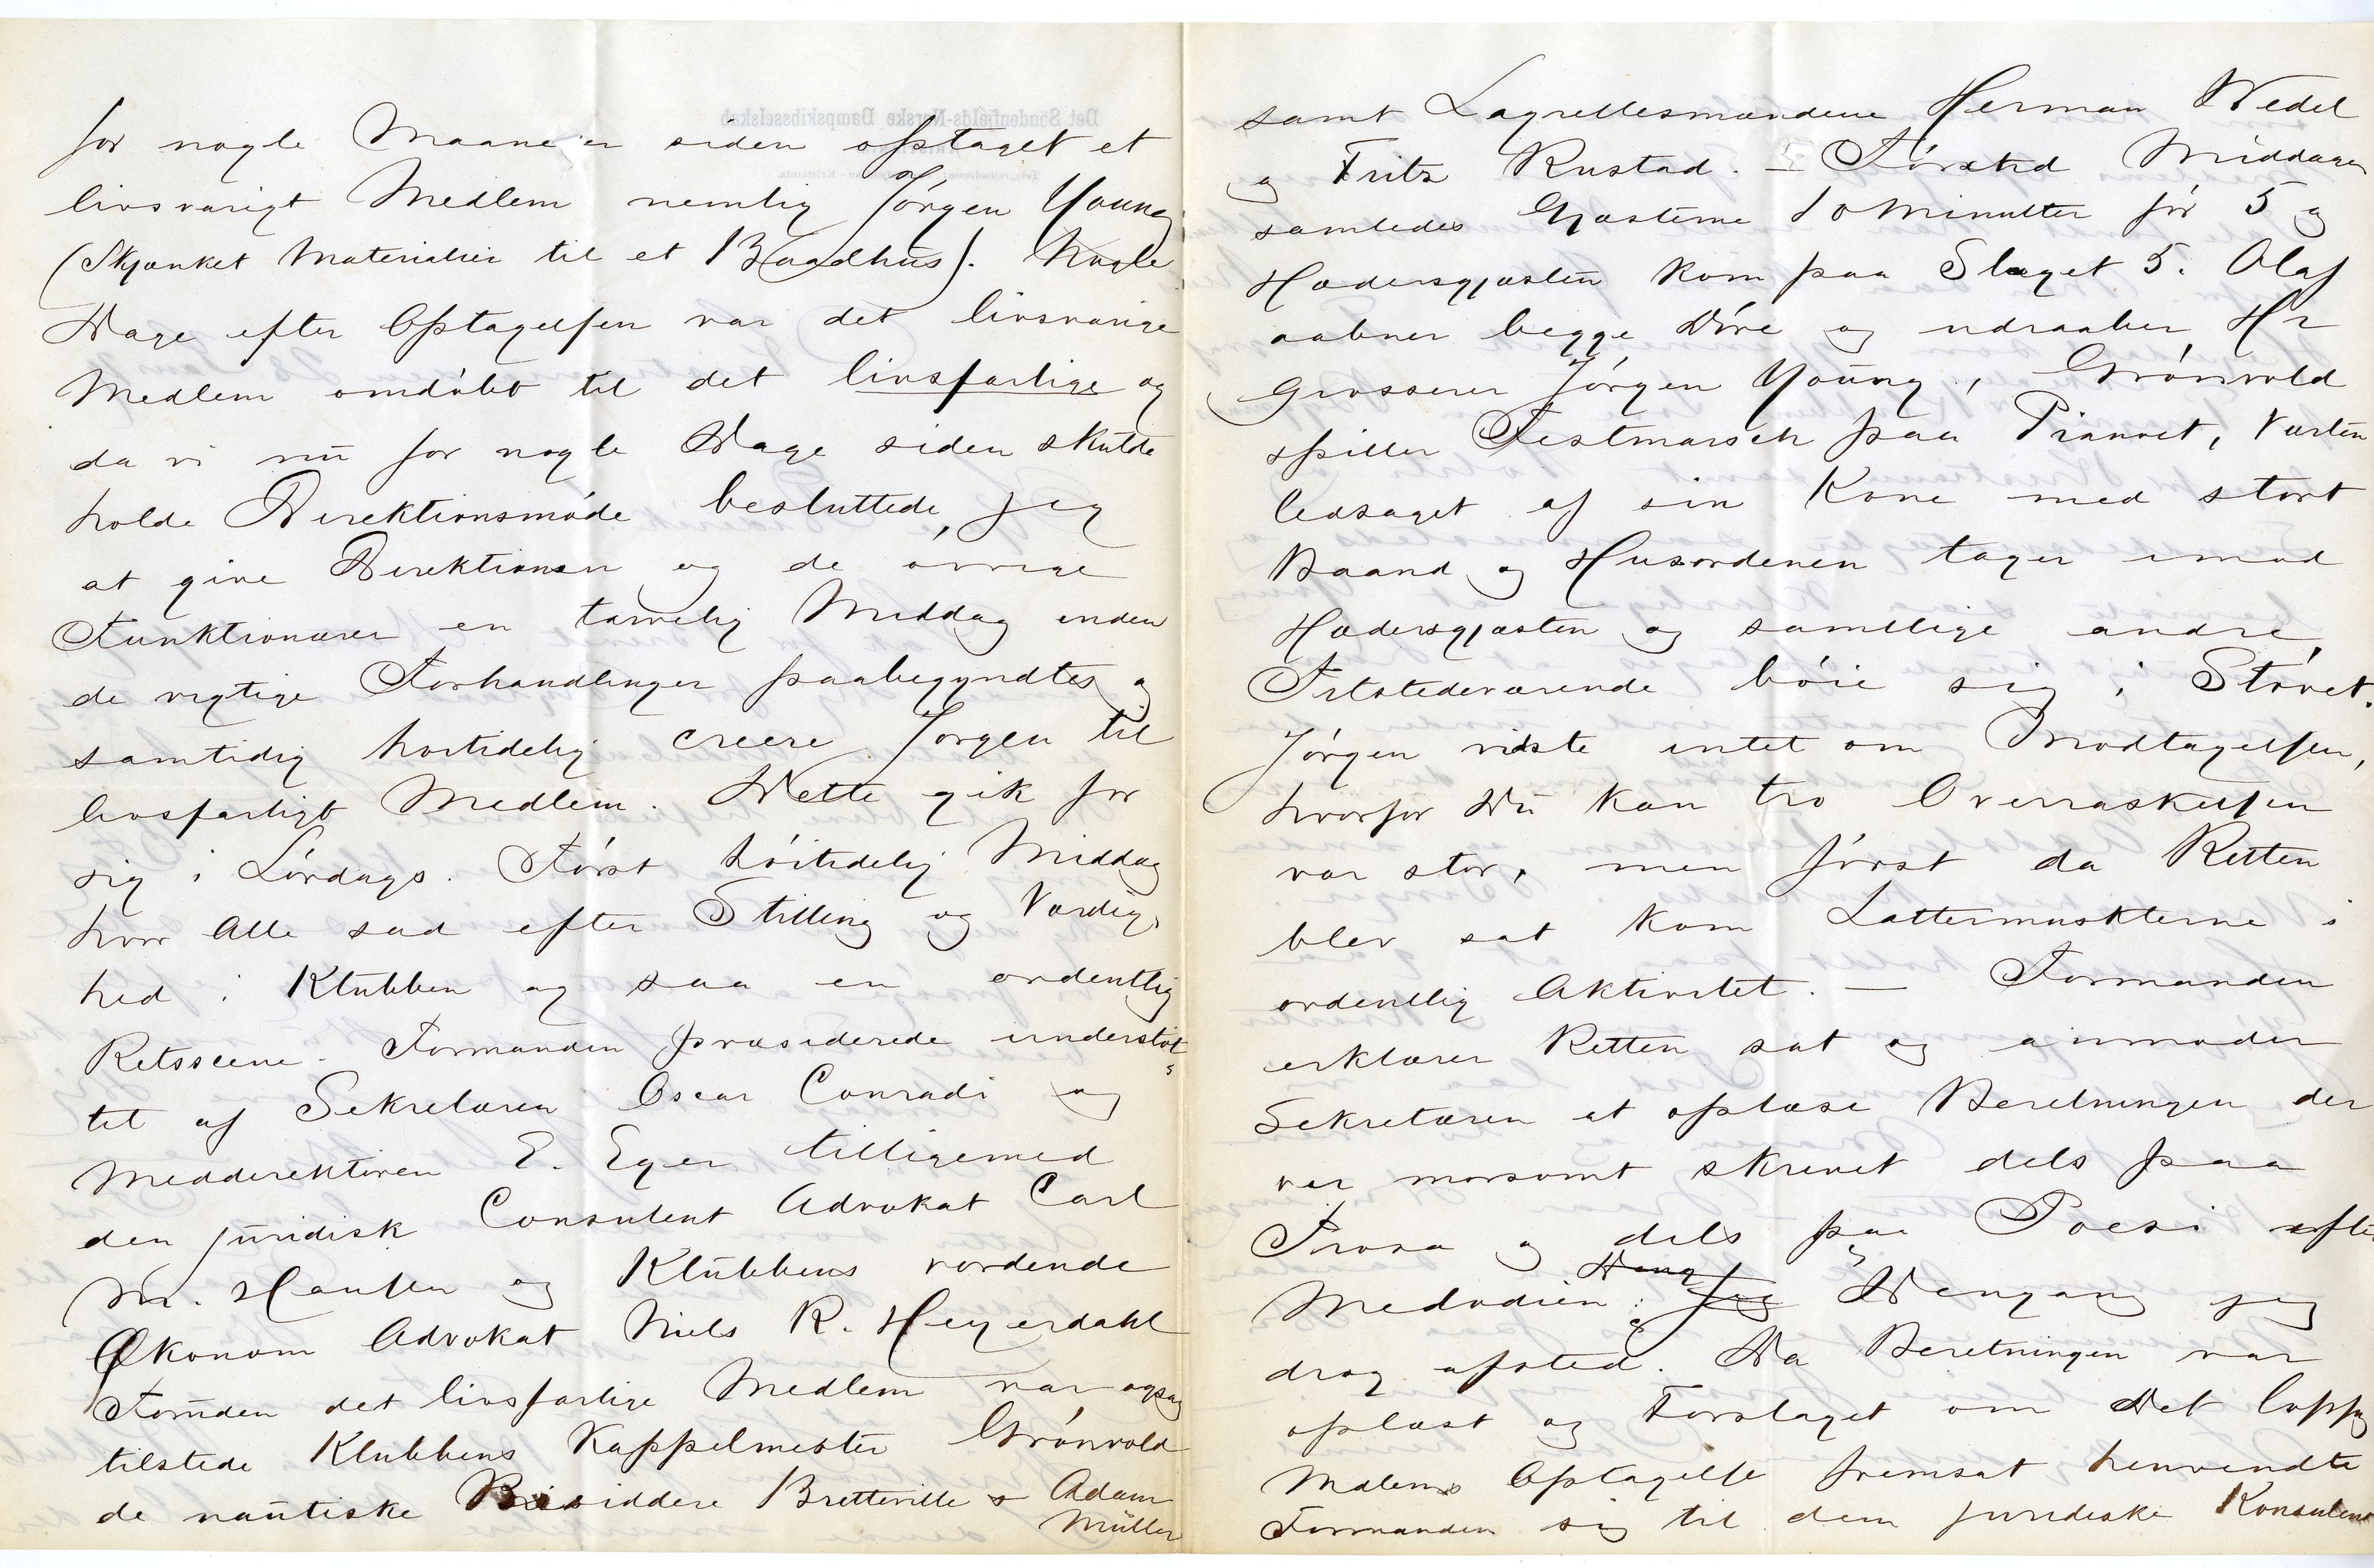 for nogle Maaneder siden optaget et
livsvarigt Medlem nemlig Jörgen Young
(Skjænket Materialier til et Baadhus). Nogle
Dage efter Optagelsen var det livsvarige
Medlem omdöbt til det livsfarlige og
da vi nu for nogle Dage siden skulde
holde Direktionsmöde besluttede jeg
at give Direktionen og de övrige
Funktionærer en tarvelig Middag inden
de vigtige Forhandlinger paabegyndtes og
samtidig hoitidelig creere Jörgen til
livsfarligt Medlem. Dette gik for
sig i Lördags. Först höitidelig Middag
hvor Alle sad efter Stilling og Værdig-
hed i Klubben og saa en ordentlig
Retsscene. Formanden præsiderede understöt-
tet af Sekretæren Oscar Conradi og
Meddirektören E. Eger tilligemed
den juridisk Consulent Advokat Carl
M. Hansen og Klubbens vordende
Økonom Advokat Niels R. Heyerdahl
Foruden det livsfarlige Medlem var ogsaa
tilstede Klubbens Kappelmester Grönvold
de nautiske Bisiddere Bretteville & Adam
Müller
samt Lagrettesmændene Herman Wedel
og Fritz Rustad. – Förstkd Middagen
samledes Gjæsterne 10 Minutter för 5 og
Hædersgjæsten kom paa Slaget 5. Olaf
aabner begge Döre og udraaber Hr
Grosserer Jörgen Young, Grönvold
spiller Festmarsch paa Pianoet, Værten
ledsaget af sin Kone med stort
Baand og Husordenen tager imod
Hædersgjæsten og samtlige andre
Tilstedeværende böie sig i Stövet.
Jörgen vidste intet om Modtagelsen,
hvorfor Du kan tro Overraskelsen
var stor, men först da Retten
blev sat kom Lattermusklerne i
ordentlig Aktivitet. — Formanden
erklærer Retten sat og anmoder
Sekretæren at oplæse Beretningen der
var morsomt skrevet dels paa
Prosa og dels paa Poesi efter
Melodien: Dengang jeg
drog afsted. Da Beretningen var
oplæst og Forslaget om Det
Mdlems Optagelse fremsat henvendte
Formanden sig til den juridiske Konsulent
Det Söndenfjelds-Norske Dampskibsselskab